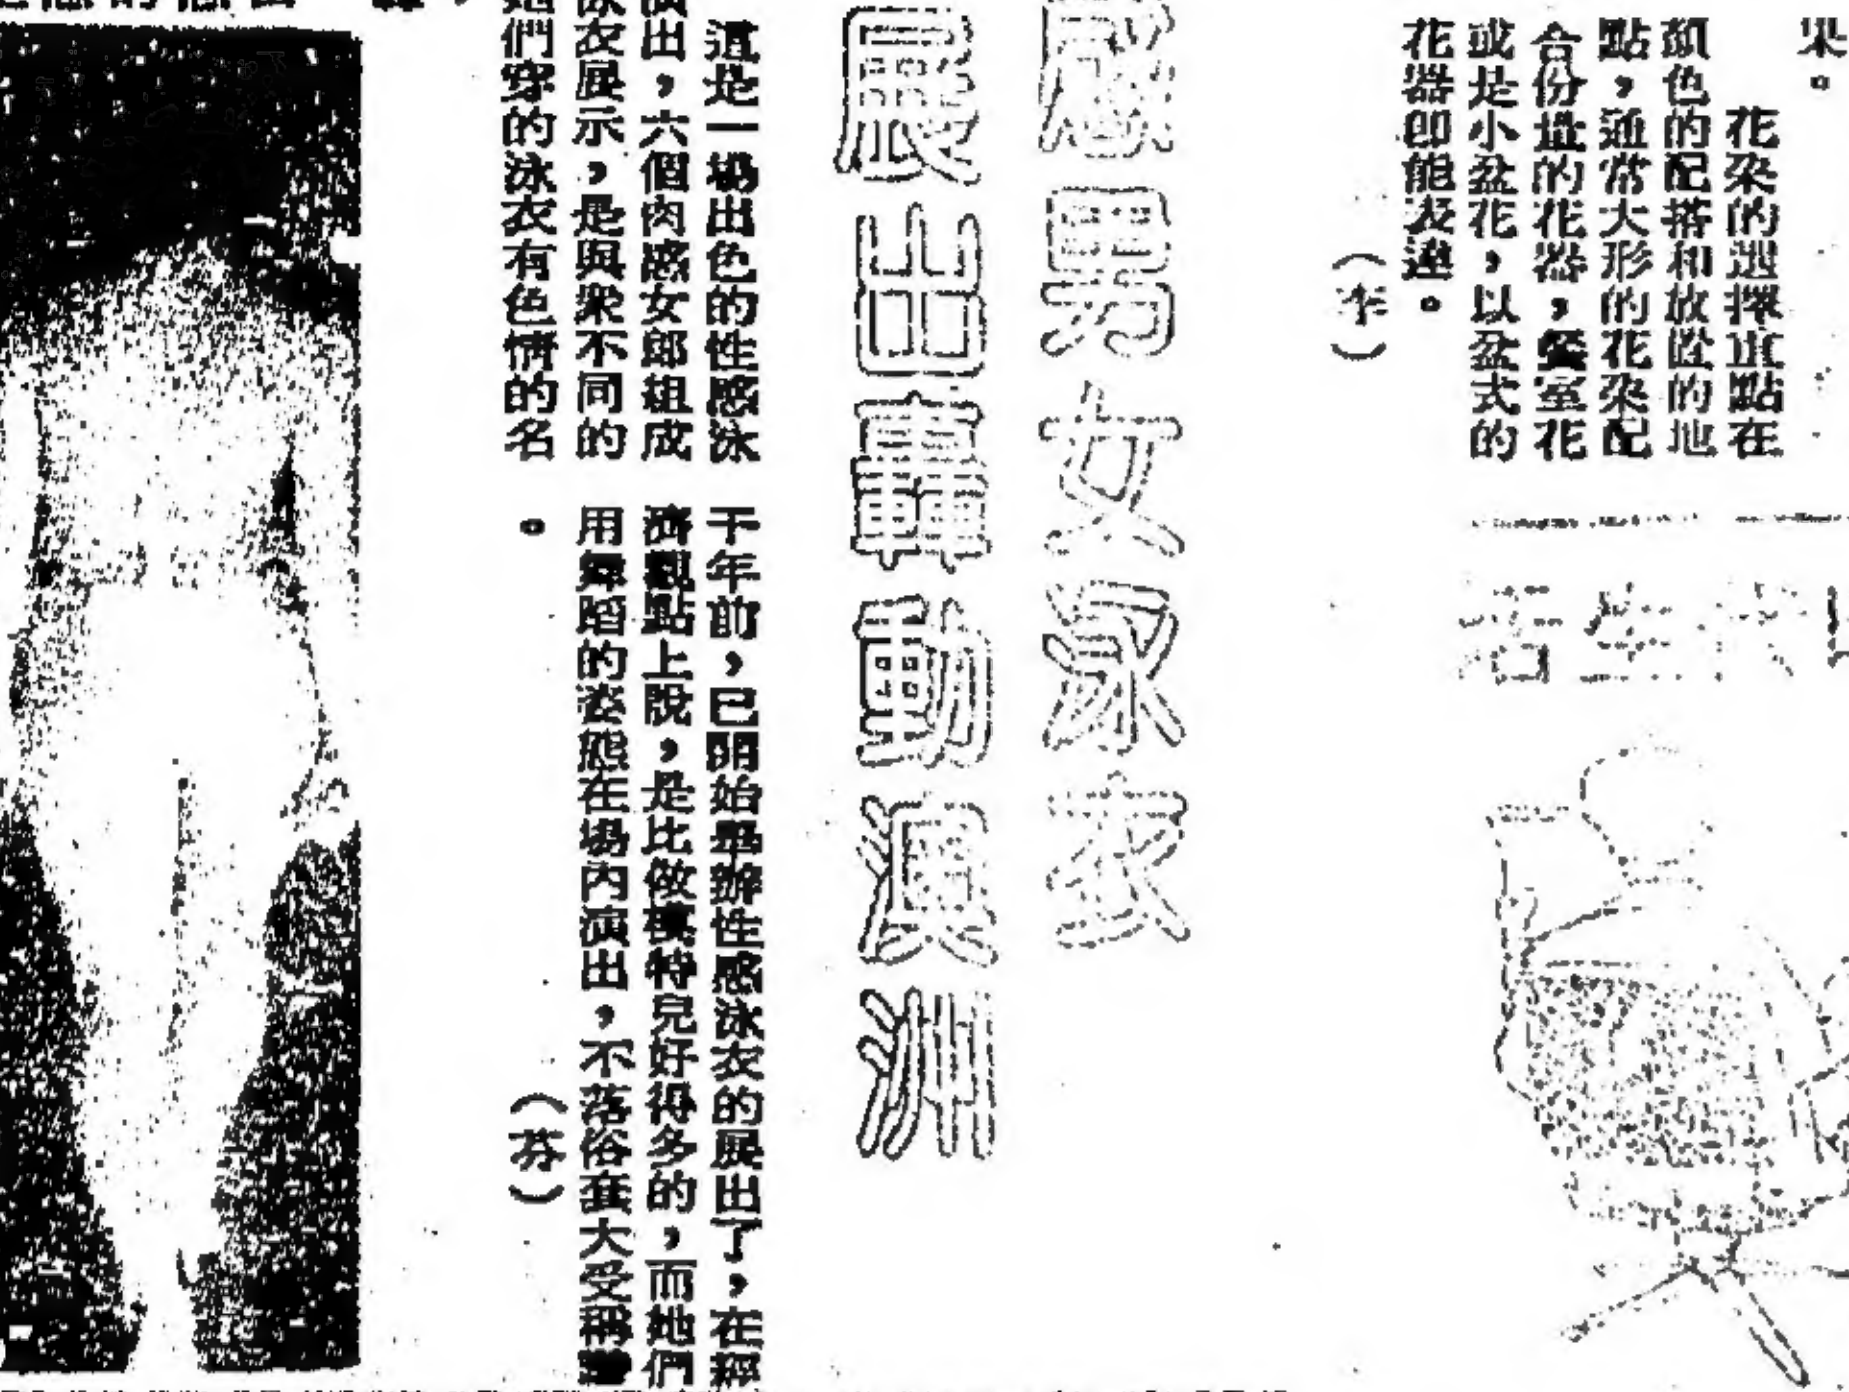 果。
花朶的選擇重點在
顏色的配搭和放置的地
點，通常大形的花朶配
合份量的花器，餐室花
或是小盆花，以盆式的
花器即能表達。
（李）
感男女泳衣
展出轟動澳洲
這是一場出色的性感泳
演出，六個肉感女郎組成
泳衣展示，是與衆不同的
她們穿的泳衣有色情的名
千年前，已開始舉辦性感泳衣的展出了，在經
濟觀點上說，是比做模特兒好得多的，而她們
用舞蹈的姿態在場內演出，不落俗套大受稱讚
。
（芬）